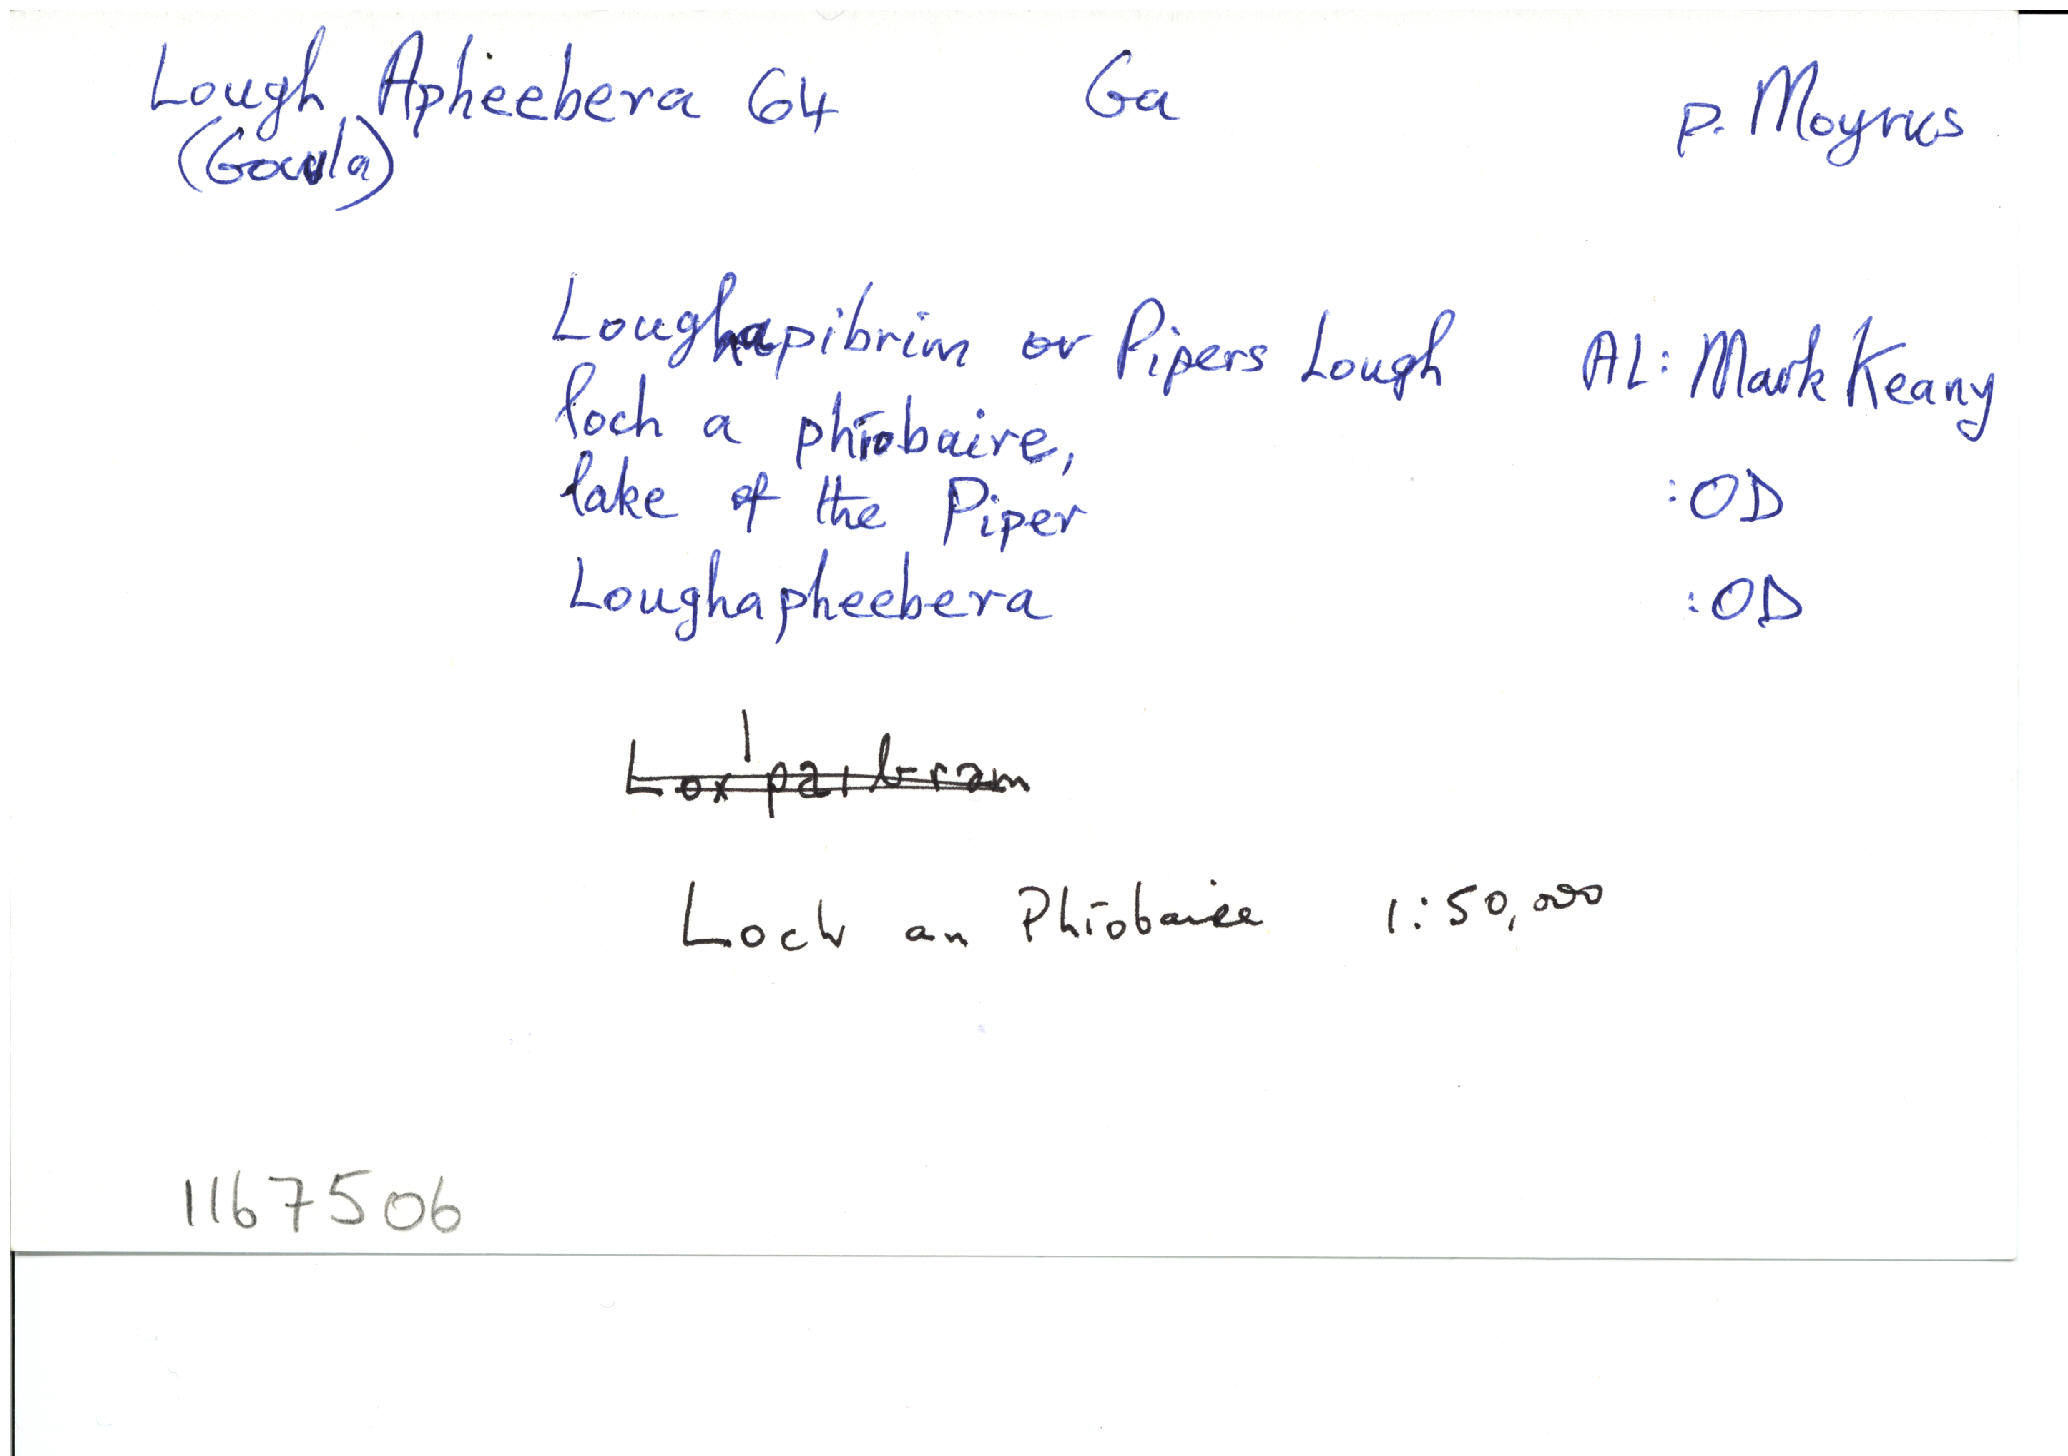 Lough Apheebera 64 Ga p. Moyrus
(Gowla)
Loughapibrim or Pipers Lough AL: Mark Keany
loch a phīobaire,
lake of the Piper :OD
Loughapheebera :OD
Loch an Phīobaire 1:50,000
1167506